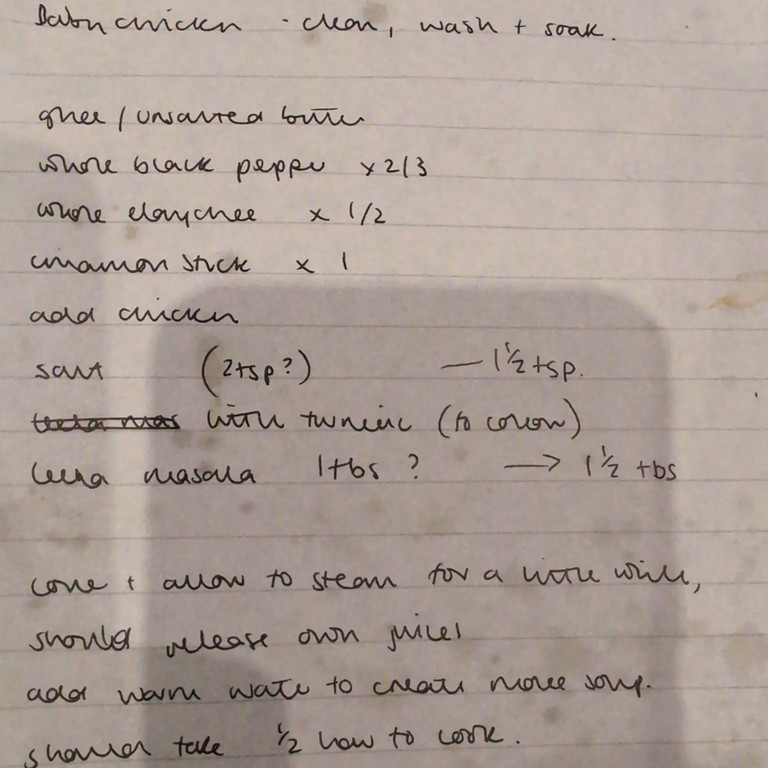 Baby chicken - clean, wash + soak.
ghee / unsalted butter
whole black pepper x 2/3
whole elaychee x 1/2
cinamon stick x 1
add chicken
salt (2tsp?) — 1½ tsp.
little tumeric (to colour)
masala 1tbs ? → 1½ tbs
cover + allow to steam for a little while,
should release own juices
add warm water to create more soup.
should take ½ hour to cook.